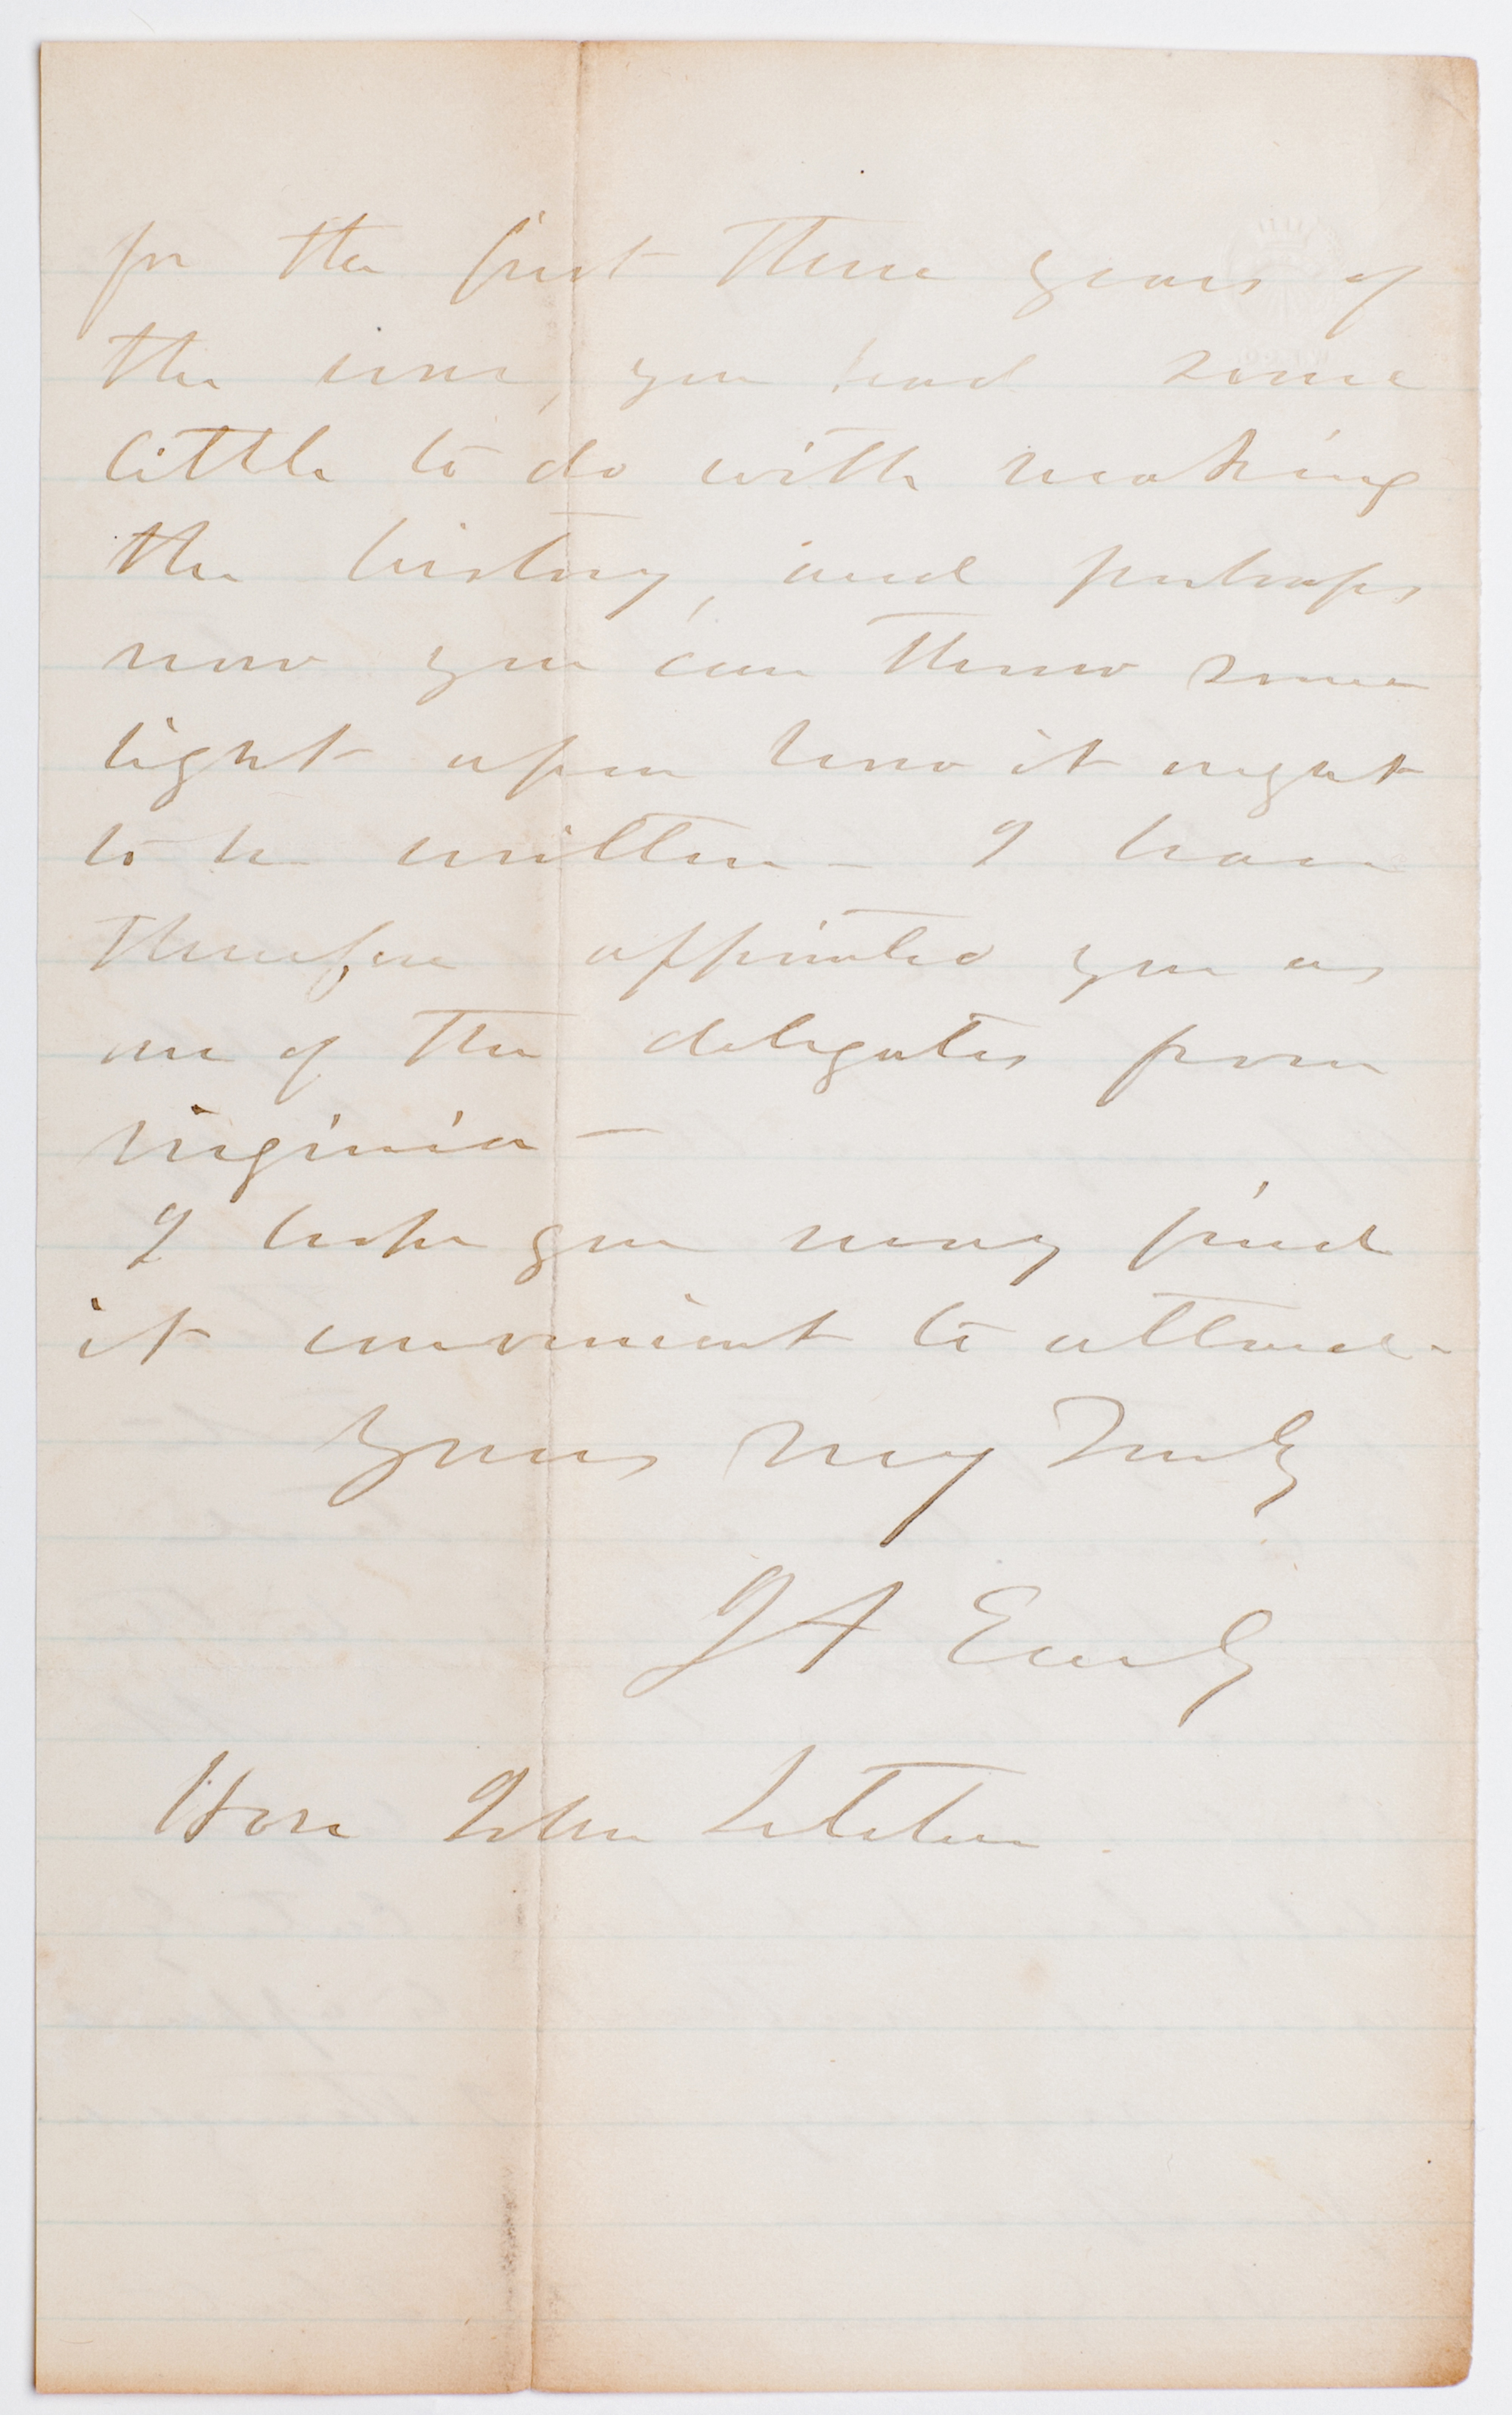 for the first three years of
the war, you had some
little to do with making
the history, and perhaps
now you can throw some
light upon how it ought
to be written – I have
therefore appointed you as
one of the delegates from
Virginia –
I hope you may find
it convenient to attend –
Yours very truly
J A Early
Hon John Letcher